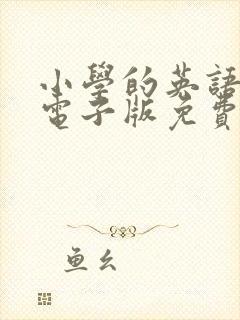 小學的英語
電子版免費
鱼幺